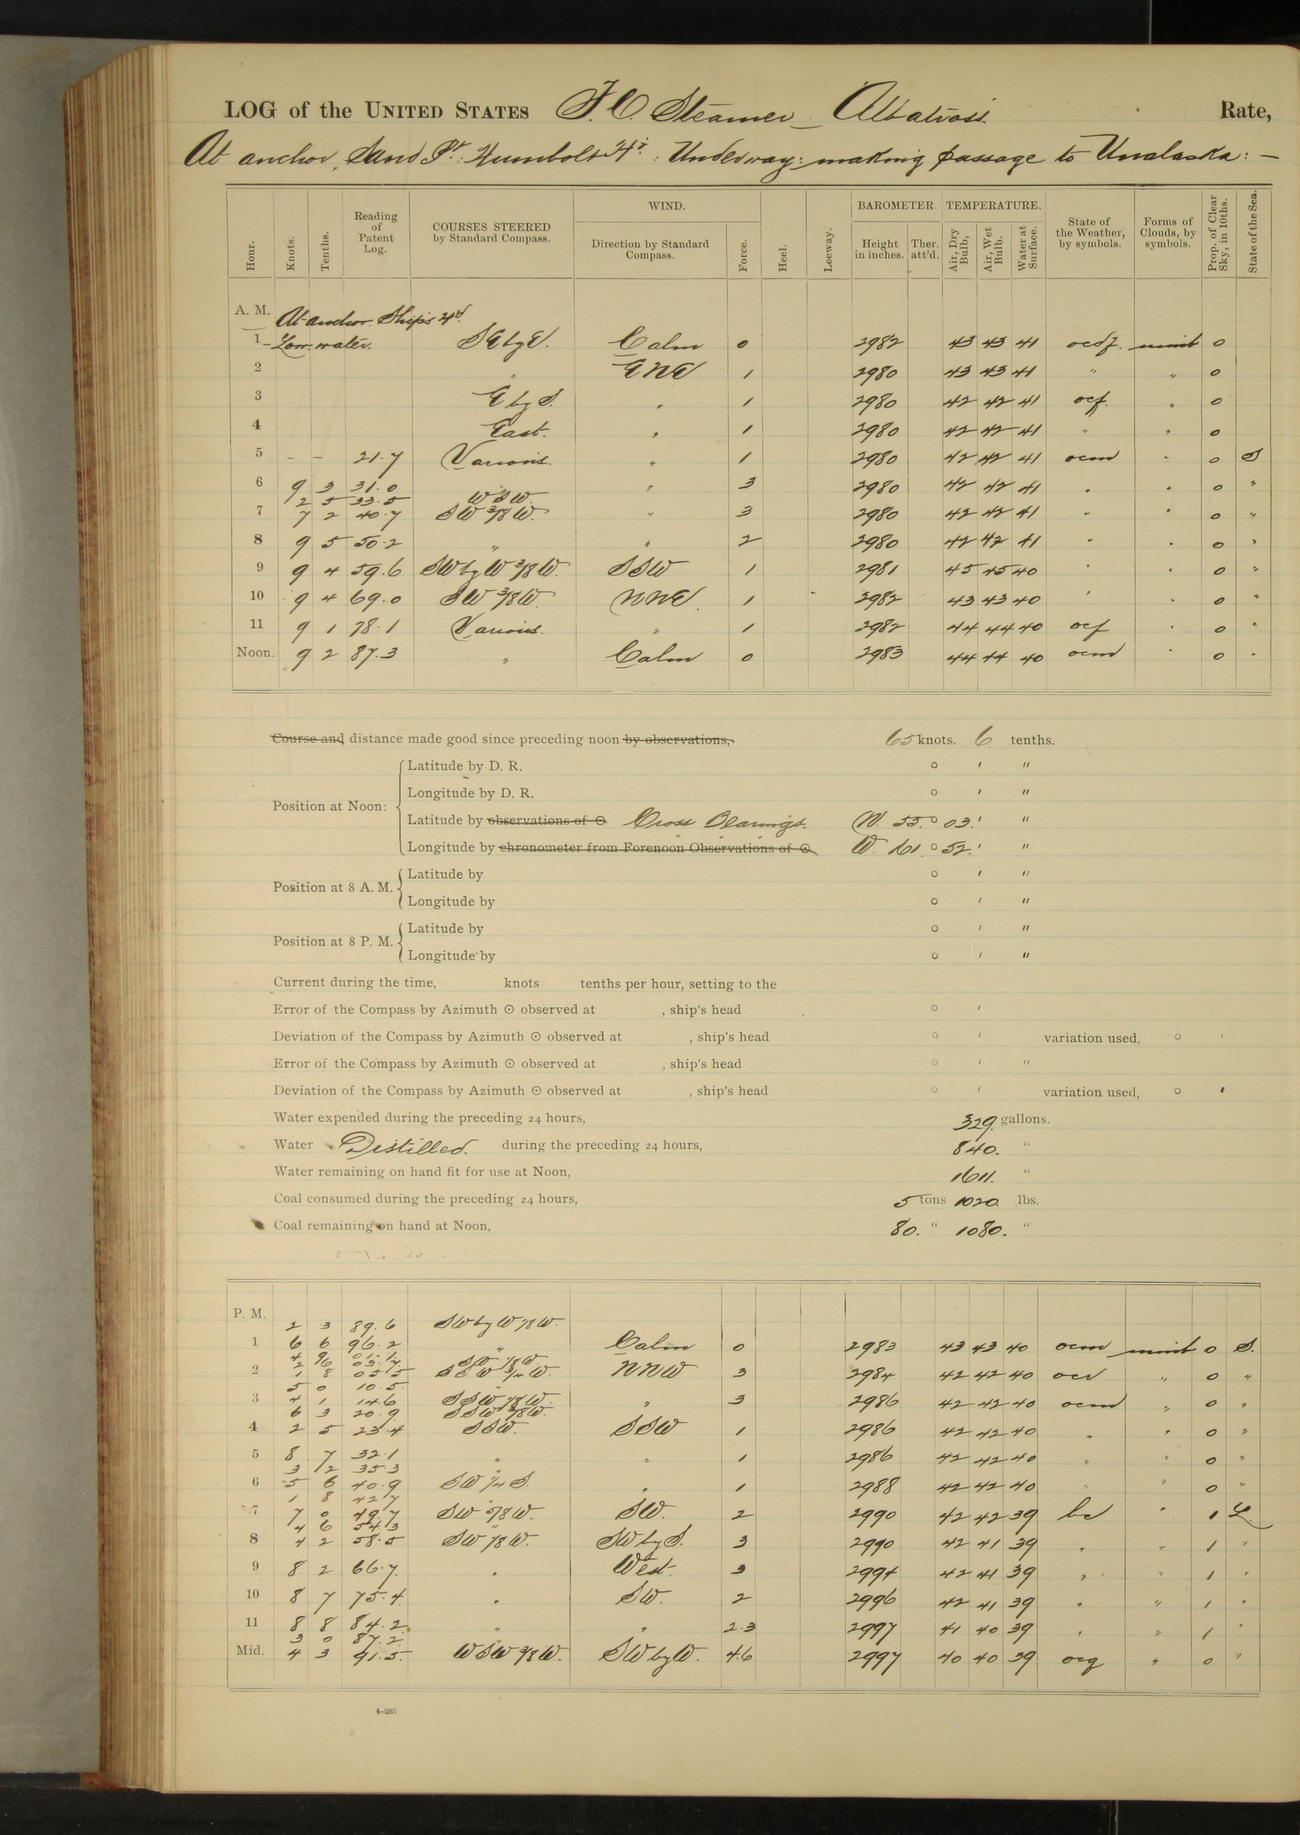 LOG of the UNITED STATES F. C. Steamer Albatross. Rate,
At anchor, Sand Pt. Humbolt Hr: Underway: making passage to Unalaska: —
Hour. Knots. Tenths. Reading of Patent Log. COURSES STEERED by Standard Compass. WIND. Direction by Standard Compass. Force. Heel. Leeway. BAROMETER. Height in inches. Ther. att'd. TEMPERATURE. Air, Dry Bulb, Air, Wet Bulb. Water at Surface. State of the Weather, by symbols. Forms of Clouds, by symbols. Prop. of Clear Sky, in 10ths. State of the Sea.
A. M. At anchor. Ships Hd.
1 Low water. SE by E. Calm 0 2982 43 43 41 0
2 " ENE 1 2980 43 43 41 " " 0
3 E by S. " 1 2980 42 42 41 ocf. " 0
4 East. " 1 2980 42 42 41 " " 0
5 - - 21.7 Various. " 1 2980 42 42 41 ocm " 0 S
6 9 3 31.0 " 3 2980 42 42 41 " " 0 "
2 5 33.5 WSW.
7 7 2 40.7 SW 3/8 W. " 3 2980 42 42 41 " " 0 "
8 9 5 50.2 " " 2 2980 42 42 41 " " 0 "
9 9 4 59.6 SW by W 3/8 W. SSW 1 2981 45 45 40 " " 0 "
10 9 4 69.0 SW 3/8 W. NNE. 1 2982 43 43 40 " " 0 "
11 9 1 78.1 Various. " 1 2982 44 44 40 ocf " 0 "
Noon. 9 2 87.3 " Calm 0 2983 44 44 40 ocm " 0 "
Course and distance made good since preceding noon by observations, 65 knots. 6 tenths.
Position at Noon:
Latitude by D. R. ° ′ ″
Longitude by D. R. ° ′ ″
Latitude by observations of ☉ Cross Bearings. N. 55.° 03.′ ″
Longitude by chronometer from Forenoon Observations of ☉ W. 161.° 52.′ ″
Position at 8 A. M.
Latitude by ° ′ ″
Longitude by ° ′ ″
Position at 8 P. M.
Latitude by ° ′ ″
Longitude by ° ′ ″
Current during the time, knots tenths per hour, setting to the
Error of the Compass by Azimuth ☉ observed at , ship's head ° ′
Deviation of the Compass by Azimuth ☉ observed at , ship's head ° ′ variation used, ° ′
Error of the Compass by Azimuth ☉ observed at , ship's head ° ′ ″
Deviation of the Compass by Azimuth ☉ observed at , ship's head ° ′ variation used, ° ′
Water expended during the preceding 24 hours, 329. gallons.
Water Distilled. during the preceding 24 hours, 840. "
Water remaining on hand fit for use at Noon, 1611. "
Coal consumed during the preceding 24 hours, 5 tons 1020. lbs.
Coal remaining on hand at Noon, 80. " 1080. "
P. M.
2 3 89.6 SW by W 1/8 W.
1 6 6 96.2 " Calm 0 2983 43 43 40 ocm 0 S.
SW 1/8 W.
2 1 8 05.5 SSW 3/4 W. NNW 3 2984 42 42 40 " 0 "
5 0 10.5
3 4 1 14.6 SSW 7/8 W. " 3 2986 42 42 40 ocm " 0 "
6 3 20.9
4 2 5 23.4 SSW. SSW 1 2986 42 42 40 " " 0 "
5 8 7 32.1 " " 1 2986 42 42 40 " " 0 "
3 2 35.3
6 5 6 40.9 SW 1/4 S. " 1 2988 42 42 40 " 0 "
1 8 42.7
7 7 0 49.7 SW 5/8 W. SW. 2 2990 42 42 39 bc " 1 L.
4 6 54.3
8 4 2 58.5 SW 1/8 W. SW by S. 3 2990 42 41 39 " " 1 "
9 8 2 66.7 " West. 3 2994 42 41 39 " " 1 "
10 8 7 75.4 " SW. 2 2996 42 41 39 " " 1 "
11 8 8 84.2 " " 2.3 2997 41 40 39 " " 1 "
3 0 87.2
Mid. 4 3 91.5 WSW 3/8 W. SW by W. 4.6 2997 40 40 39 ocq " 0 "
4-265